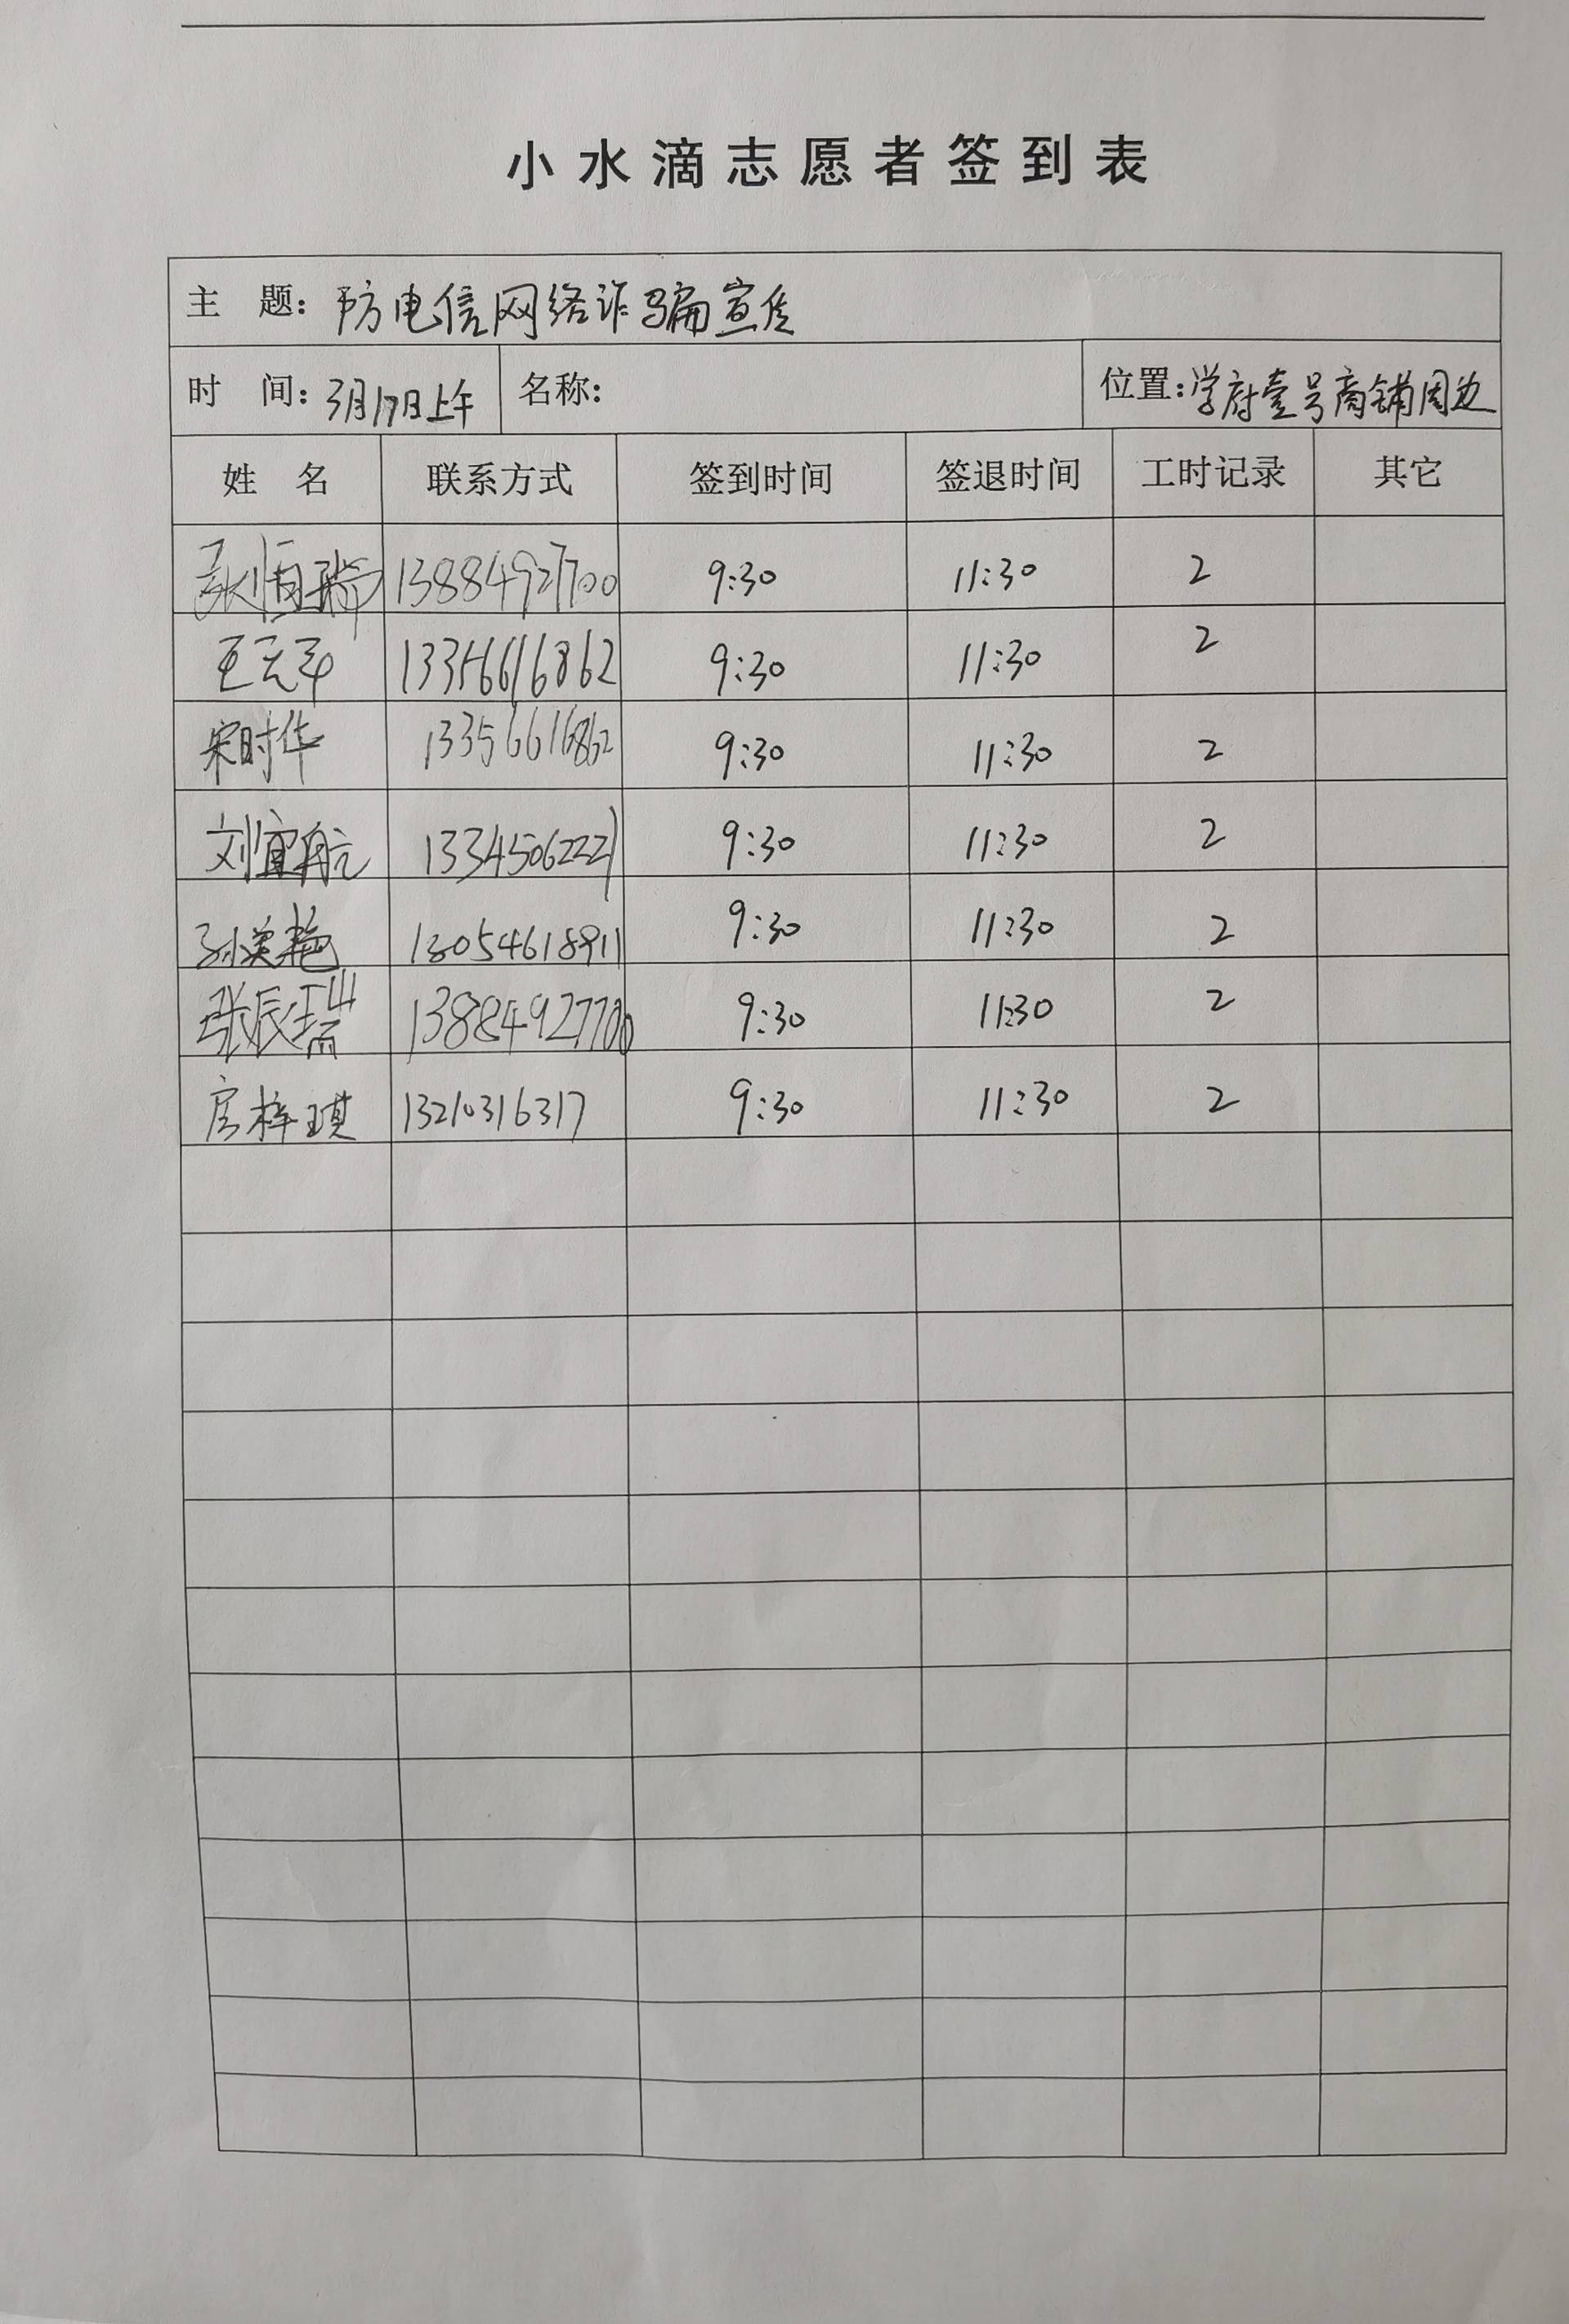 小水滴志愿者签到表
主 题: 防电信网络诈骗宣传
时 间: 3月17日上午 名称: 位置: 学府壹号商铺周边
姓 名 联系方式 签到时间 签退时间 工时记录 其它
13884927700 9:30 11:30 2
王云平 13356616862 9:30 11:30 2
宋时华 13356616862 9:30 11:30 2
刘宜航 13345062221 9:30 11:30 2
孙美艳 13054618911 9:30 11:30 2
张辰瑞 13884927700 9:30 11:30 2
房梓琪 13210316317 9:30 11:30 2